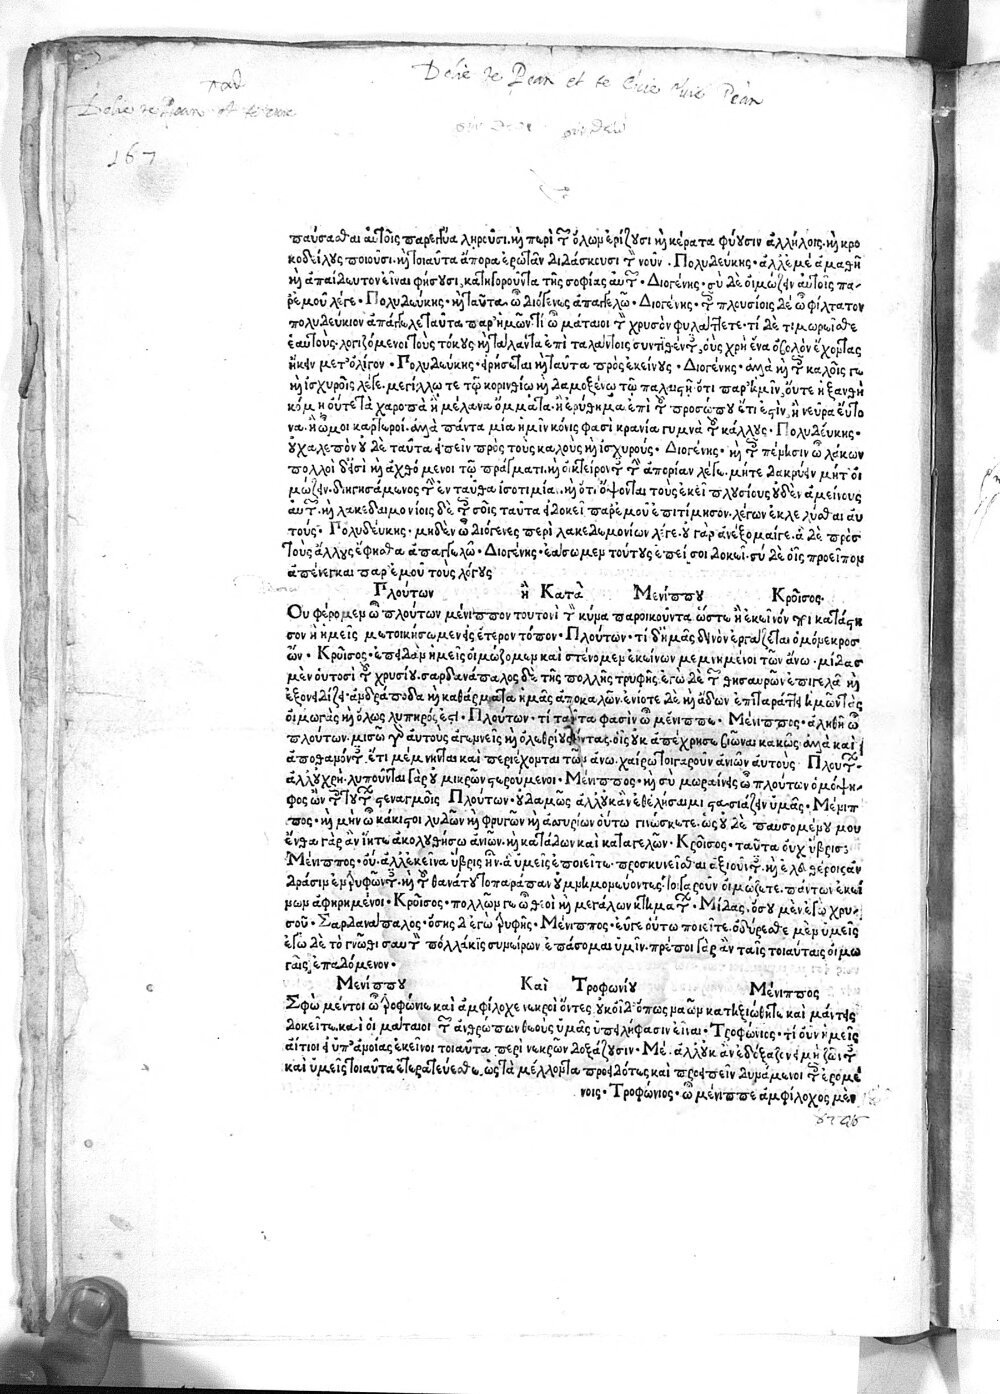 παύσασθαι αὐτοῖς παρεγγύα ληροῦσι. καὶ περὶ τῶν ὅλων ἐρίζουσι καὶ κέρατα φύουσιν ἀλλήλοις. καὶ κρο
κοδείλους ποιοῦσι. καὶ τοιαῦτα ἄπορα ἐρωτᾶν διδάσκουσι τὸν νοῦν. Πολυδεύκης· ἀλλ' ἐμὲ ἀμαθῆ
καὶ ἀπαίδευτον εἶναι φήσουσι. κατηγοροῦντα τῆς σοφίας αὐτῶν· Διογένης· σὺ δὲ οἰμώζειν αὐτοῖς πα-
ρ' ἐμοῦ λέγε· Πολυδεύκης· καὶ ταῦτα ὦ διόγενες ἀπαγγελῶ· Διογένης· τοῖς πλουσίοις δὲ ὦ φίλτατον
πολυδεύκιον ἀπάγγελε ταῦτα παρ' ἡμῶν. τί ὦ μάταιοι τὸν χρυσὸν φυλάττετε· τί δὲ τιμωρεῖσθε
ἑαυτούς. λογιζόμενοι τοὺς τόκους καὶ τάλαντα ἐπὶ ταλάντοις συντιθέντες, οὓς χρὴ ἕνα ὀβολὸν ἔχοντας
ἥκειν μετ' ὀλίγον· Πολυδεύκης· εἰρήσεται καὶ ταῦτα πρὸς ἐκείνους· Διογένης· ἀλλὰ καὶ τοῖς καλοῖς γε
καὶ ἰσχυροῖς λέγε. μεγίλλῳ τε τῷ κορινθίῳ καὶ δαμοξένῳ τῷ παλαιστῇ ὅτι παρ' ἡμῖν, οὔτε ἡ ξανθὴ
κόμη οὔτε τὰ χαροπὰ ἢ μέλανα ὄμματα. ἢ ἐρύθημα ἐπὶ τοῦ προσώπου ἔτι ἐστίν, ἢ νεῦρα εὔτο
να. ἢ ὦμοι καρτεροί. ἀλλὰ πάντα μία ἡμῖν κόνις φασὶ κρανία γυμνὰ τοῦ κάλλους· Πολυδεύκης·
οὐ χαλεπὸν οὐδὲ ταῦτα εἰπεῖν πρὸς τοὺς καλοὺς καὶ ἰσχυρούς· Διογένης· καὶ τοῖς πένησιν ὦ λάκων
πολλοὶ δ' εἰσὶ καὶ ἀχθόμενοι τῷ πράγματι. καὶ οἰκτείροντες τὴν ἀπορίαν λέγε. μήτε δακρύειν μήτ' οἰ
μώζειν. διηγησάμενος τὴν ἐνταῦθα ἰσοτιμίαν. καὶ ὅτι ὄψονται τοὺς ἐκεῖ πλουσίους οὐδὲν ἀμείνους
αὐτῶν. καὶ λακεδαιμονίοις δὲ τοῖς σοῖς ταῦτα εἰ δοκεῖ παρ' ἐμοῦ ἐπιτίμησον. λέγων ἐκλελύσθαι αὐ
τούς· Πολυδεύκης· μηδὲν ὦ διόγενες περὶ λακεδαιμονίων λέγε. οὐ γὰρ ἀνέξομαί γε. ἃ δὲ πρὸς
τοὺς ἄλλους ἔφησθα ἀπαγγελῶ· Διογένης· ἐάσωμεν τούτους ἐπεί σοι δοκεῖ. σὺ δὲ οἷς προεῖπον
ἀπένεγκαι παρ' ἐμοῦ τοὺς λόγους
Πλούτων ἢ Κατὰ Μενίππου Κροῖσος·
Οὐ φέρομεν ὦ πλούτων μένιππον τουτονὶ τὸν κύνα παροικοῦντα. ὥστε ἢ ἐκεῖνόν ποι κατάστη
σον ἢ ἡμεῖς μετοικήσωμεν εἰς ἕτερον τόπον· Πλούτων· τί δ' ἡμᾶς δεινὸν ἐργάζεται ὁμόνεκρος
ὤν· Κροῖσος· ἐπειδὰν ἡμεῖς οἰμώζομεν καὶ στένομεν ἐκείνων μεμνημένοι τῶν ἄνω· μίδας
μὲν οὑτοσὶ τοῦ χρυσίου. σαρδανάπαλος δὲ τῆς πολλῆς τρυφῆς. ἐγὼ δὲ τῶν θησαυρῶν ἐπιγελᾷ καὶ
ἐξονειδίζει· ἀνδράποδα καὶ καθάρματα ἡμᾶς ἀποκαλῶν. ἐνίοτε δὲ καὶ ᾄδων ἐπιταράττει ἡμῶν τὰς
οἰμωγάς. καὶ ὅλως λυπηρός ἐστι· Πλούτων· τί ταῦτα φασὶν ὦ μένιππε· Μένιππος· ἀληθῆ ὦ
πλούτων. μισῶ γὰρ αὐτοὺς ἀγεννεῖς καὶ ὀλεθρίους ὄντας. οἷς οὐκ ἀπέχρησε βιῶναι κακῶς. ἀλλὰ καὶ
ἀποθανόντες ἔτι μέμνηνται καὶ περιέχονται τῶν ἄνω. χαίρω τοιγαροῦν ἀνιῶν αὐτοὺς Πλούτων·
ἀλλ' οὐ χρή. λυποῦνται γὰρ οὐ μικρῶν στερούμενοι· Μένιππος· καὶ σὺ μωραίνεις ὦ πλούτων ὁμόψη-
φος ὢν τοῖς τούτων στεναγμοῖς Πλούτων· οὐδαμῶς ἀλλ' οὐκ ἂν ἐθέλησαιμι στασιάζειν ὑμᾶς· Μένιπ
πος· καὶ μὴν ὦ κάκιστοι λυδῶν καὶ φρυγῶν καὶ ἀσσυρίων οὕτω γινώσκετε. ὡς οὐδὲ παυσομένου μου
ἔνθα γὰρ ἂν ἴητε ἀκολουθήσω ἀνιῶν. καὶ κατάδων καὶ καταγελῶν· Κροῖσος· ταῦτα οὐχ ὕβρις;
Μένιππος· οὔ. ἀλλ' ἐκεῖνα ὕβρις ἦν. ἃ ὑμεῖς ἐποιεῖτε. προσκυνεῖσθαι ἀξιοῦντες. καὶ ἐλευθέροις ἀν
δράσιν ἐντρυφῶντες. καὶ τοῦ θανάτου τοπαράπαν οὐ μνημονεύοντες. τοιγαροῦν οἰμώξετε. πάντων ἐκεί
νων ἀφῃρημένοι· Κροῖσος· πολλῶν γε ὦ θεοὶ καὶ μεγάλων κτημάτων· Μίδας. ὅσου μὲν ἐγὼ χρυ-
σοῦ· Σαρδανάπαλος· ὅσης δ' ἐγὼ τρυφῆς· Μένιππος· εὖγε οὕτω ποιεῖτε. ὀδύρεσθε μὲν ὑμεῖς
ἐγὼ δὲ τὸ γνῶθι σαυτὸν πολλάκις συνείρων ἐπάσομαι ὑμῖν. πρέποι γὰρ ἂν ταῖς τοιαύταις οἰμω
γαῖς ἐπᾳδόμενον·
Μενίππου Καὶ Τροφωνίου Μένιππος
Σφὼ μέντοι ὦ τροφώνιε καὶ ἀμφίλοχε νεκροὶ ὄντες. οὐκ οἶδ' ὅπως ναῶν κατηξιώθητε καὶ μάντεις
δοκεῖτε. καὶ οἱ μάταιοι τῶν ἀνθρώπων θεοὺς ὑμᾶς ὑπειλήφασιν εἶναι· Τροφώνιος· τί οὖν ἡμεῖς
αἴτιοι εἰ ὑπ' ἀνοίας ἐκεῖνοι τοιαῦτα περὶ νεκρῶν δοξάζουσιν· Με. ἀλλ' οὐκ ἂν ἐδόξαζεν εἰ μὴ ζῶντες
καὶ ὑμεῖς τοιαῦτα ἐτερατεύεσθε. ὡς τὰ μέλλοντα προειδότες καὶ προειπεῖν δυνάμενοι τοῖς ἐρομέ
νοις· Τροφώνιος· ὦ μένιππε ἀμφίλοχος μὲν